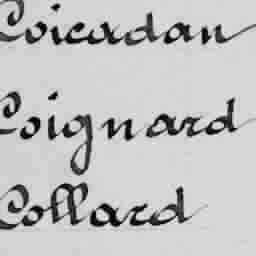 Coicadan
Coignard
Collard